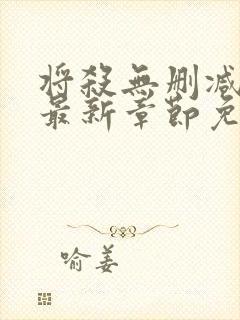 将殺無删减
最新章節免
喻姜